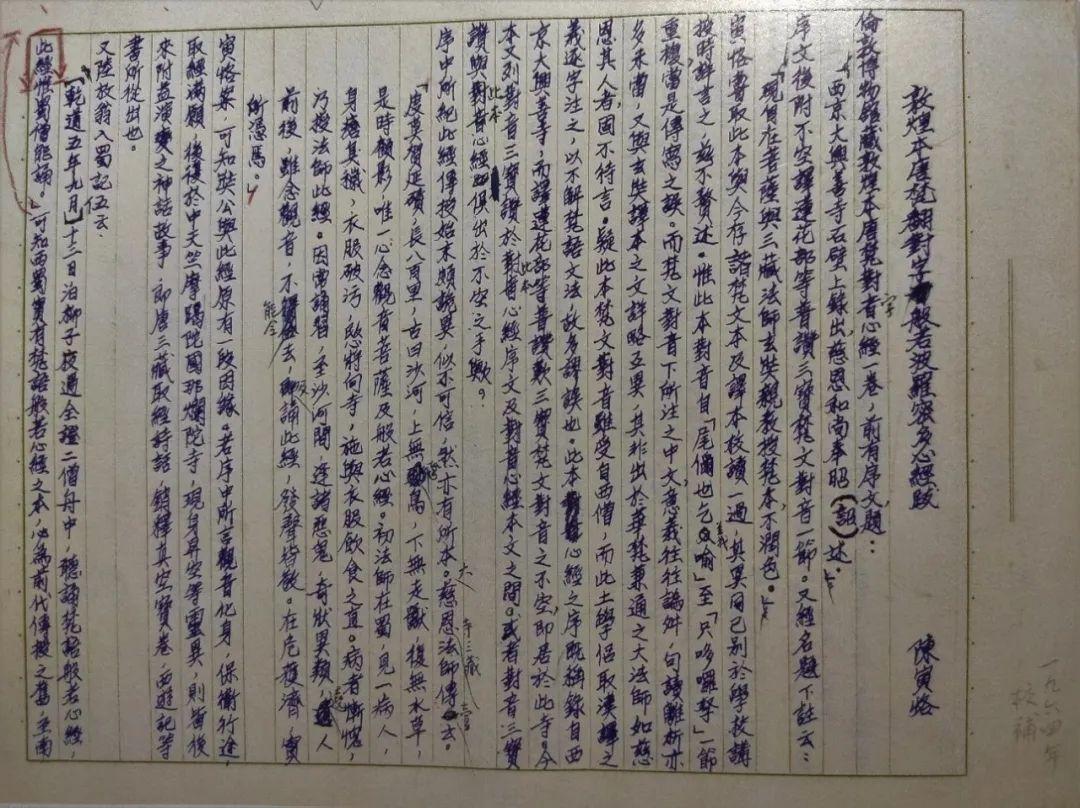 敦煌本唐梵翻對字音般若波羅密多心經跋
陳寅恪
一九六四年
校補
倫敦博物館藏敦煌本唐梵對字音心經一卷，前有序文，題：
「西京大興善寺石壁上錄出，慈恩和尚奉昭（詔）述。」
序文後附不空譯蓮花部等普讚歎三寶梵文對音一節。又經名題下註云：
「觀自在菩薩與三藏法師玄奘親教授梵本，不潤色。」
寅恪嘗取此本與今存諸梵文本及譯本校讀一過，其異同已別於學校講
授時詳言之，茲不贅述。惟此本對音自「尾儞也乞叉喻」至「只哆囉孥」一節
重複，當是傳寫之誤。而梵文對音下所注之中文意義往往譌舛，句讀離析亦
多未當，又與玄奘譯本之文詳略互異，其非出於華梵兼通之大法師如慈
恩其人者，固不待言。疑此本梵文對音雖受自西僧，而此土學侶取漢譯之
義逐字注之，以不解梵語文法，故多謬誤也。此本心經之序既稱錄自西
京大興善寺，而譯蓮花部等普讚歎三寶梵文對音之不空，即居於此寺。今
本文列對音三寶讚於此本對音心經序文及對音心經本文之間。或者對音三寶
讚與此本對音心經俱出於不空之手歟。
序中所紀此經傳授始末頗詭異，似不可信，然亦有所本。大慈恩寺三藏法師傳壹云。
「虔莫賀延磧，長八百里，古曰沙河，上無飛鳥，下無走獸，復無水草，
是時顧影，唯一心念觀音菩薩及般若心經。初法師在蜀，見一病人，
身瘡臭穢，衣服破污，愍將向寺，施與衣服飲食之直。病者慚愧，
乃授法師此經。因常誦習，至沙河間，逢諸惡鬼，奇狀異類，遶人
前後，雖念觀音，不能令去，及誦此經，發聲皆散。在危獲濟，實
所憑焉。」
寅恪案，可知奘公與此經原有一段因緣。若序中所言觀音化身，保衛行途，
取經滿願，後復於中天竺摩竭陀國那爛陀寺，現身昇空等靈異，則皆後
來附益演變之神話故事，即唐三藏取經詩話，銷釋真空寶卷，西遊記等
書所從出也。
又陸放翁入蜀記伍云：
「[乾道五年九月]十三日泊柳子，夜過全證二僧舟中，聽誦梵語般若心經，
此經惟蜀僧能誦。」可知西蜀實有梵語般若心經之本，必為前代傳授之舊，至南